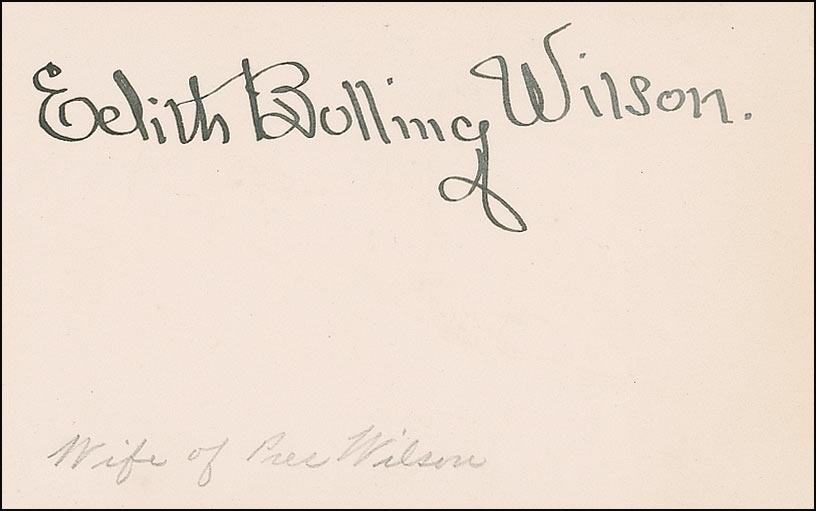 Edith Bolling Wilson.
Wife of Pres Wilson